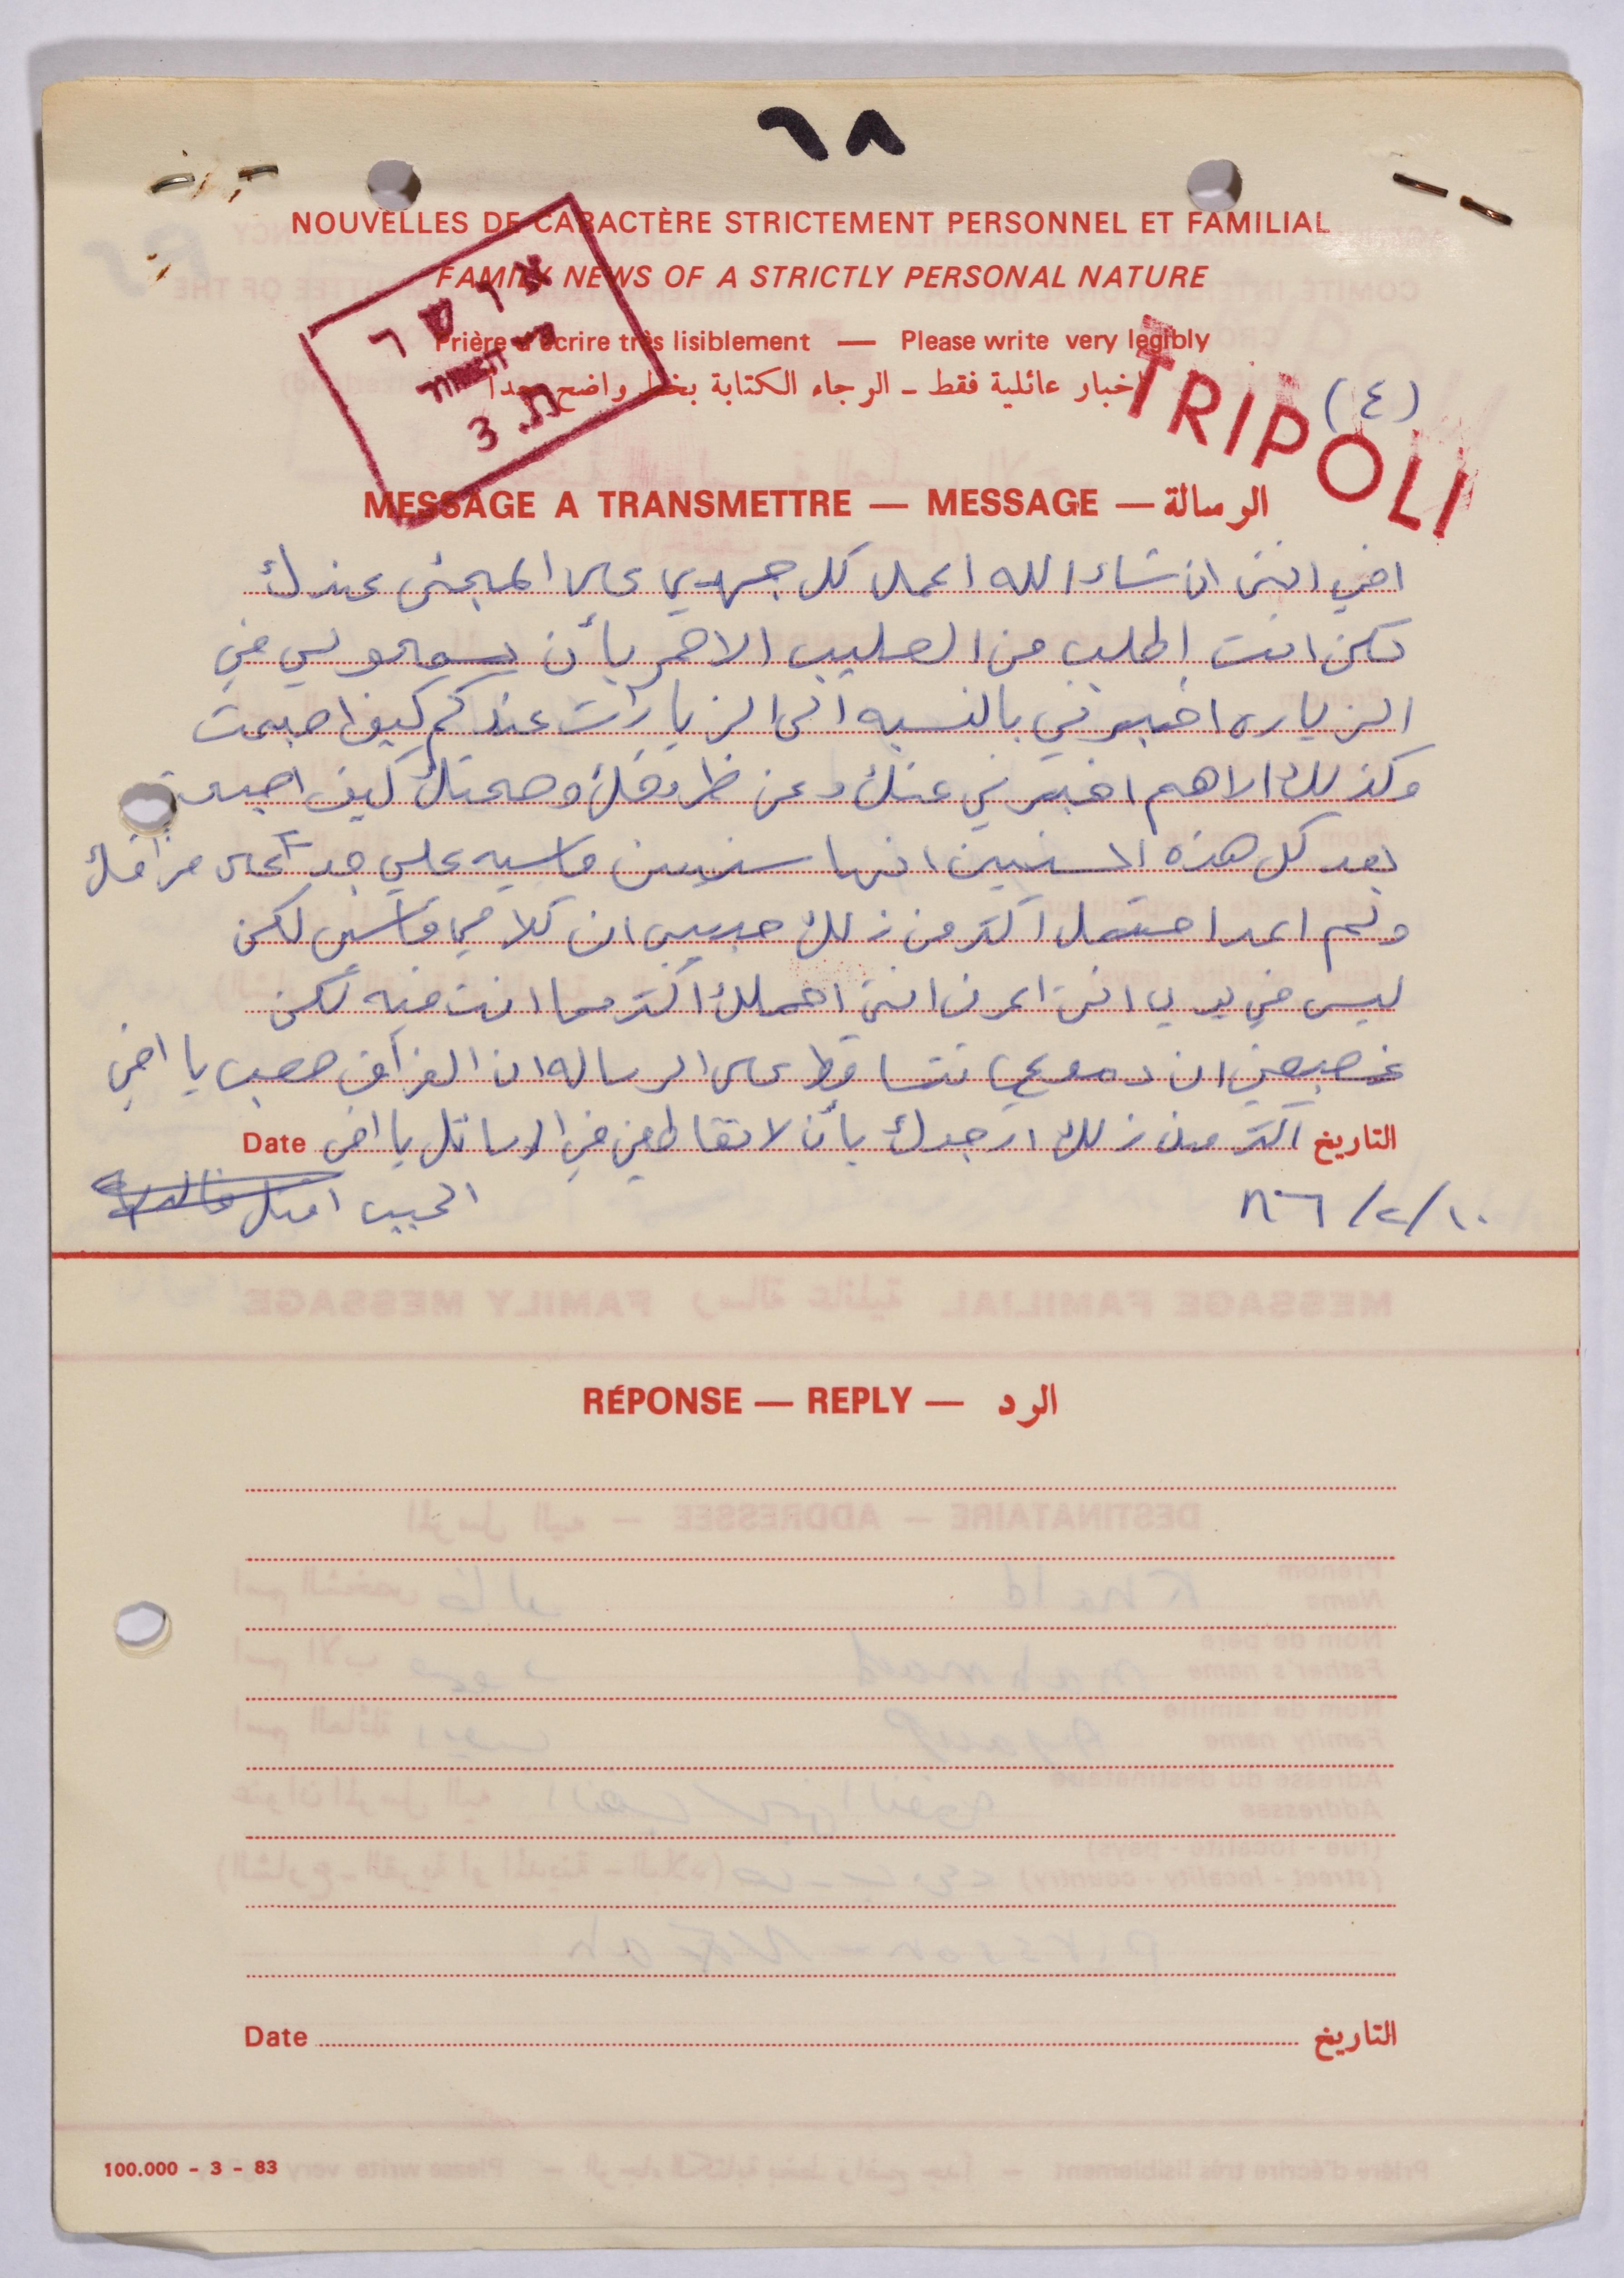 ٦٨
NOUVELLES DE CARACTÈRE STRICTEMENT PERSONNEL ET FAMILIAL
FAMILY NEWS OF A STRICTLY PERSONAL NATURE
Prière d'écrire très lisiblement — Please write very legibly
اخبار عائلية فقط - الرجاء الكتابة بخط واضح جداً
(٤)
TRIPOLI
ת. 3
MESSAGE A TRANSMETTRE — MESSAGE — الرسالة
اخي انني ان شاء الله اعمل كل جهدي على المجئى عندك
لكن انت إطلب من الصليب الاحمر بأن يسمحو لي في
الزياره اخبرني بالنسبه الى الزيارات عندكم كيف اصبحت
وكذلك الاهم اخبرني عنك وعن ظروفك وصحتك كيف اصبحت
بعد كل هذه السنين انها سنين قاسيه علي جداً على فراقك
ولم اعد احتمل اكتر من زلك حبيبي ان كلامي قاسي لكن
ليس في يدي انني اعرف انني احملك اكتر مما انت فيه لكن
غصبعني ان دموعي تتساقط على الرساله ان الفراق صعب يا اخي
التاريخ اكتر من زلك ارجوك بأن لاتقاطعني في الرسائل يا اخي Date
الحبيب امل
١٠/٢/٨٦
RÉPONSE — REPLY — الرد
Date التاريخ
100.000 - 3 - 83